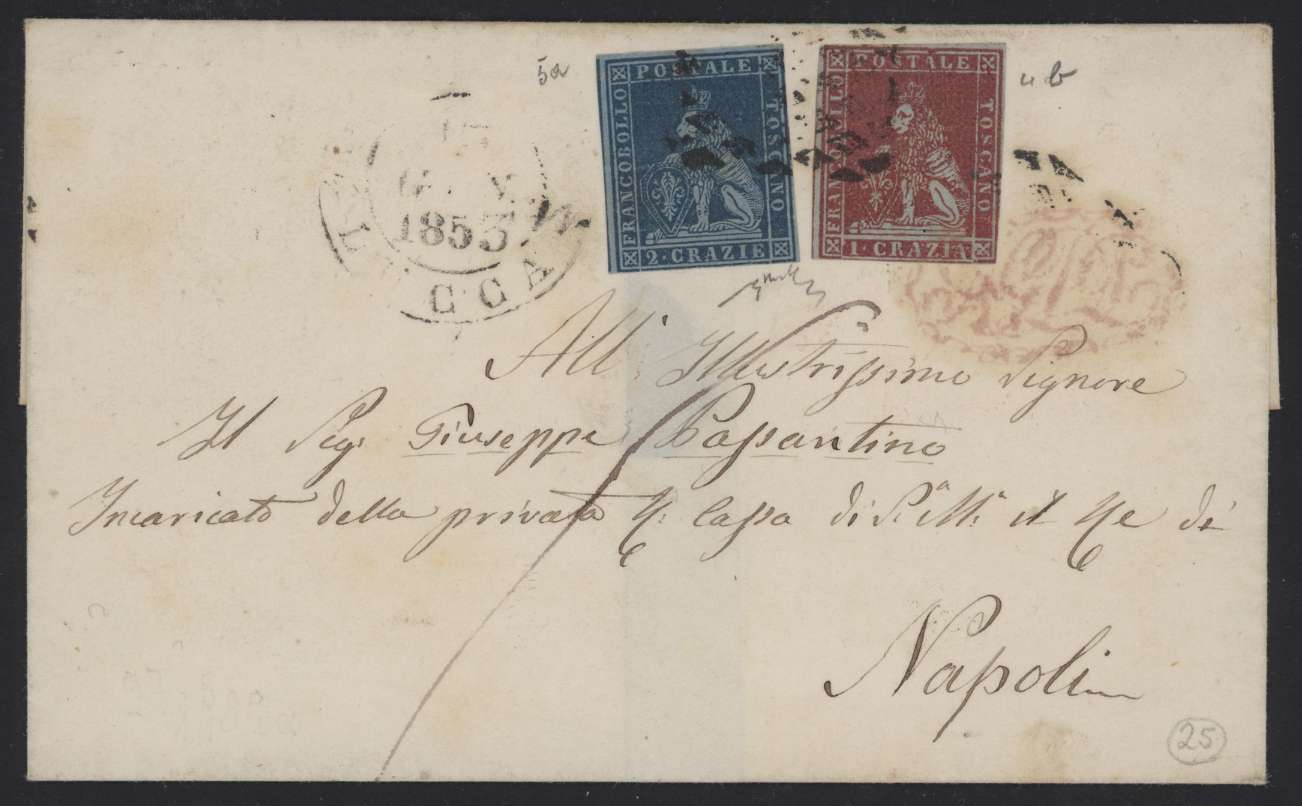 5a
4b
FRANCOBOLLO POSTALE TOSCANO
2·CRAZIE
FRANCOBOLLO POSTALE TOSCANO
1·CRAZIA
1853
LUCCA
All' Illustrissimo Signore
Il Sig: Giuseppe Passantino
Incaricato della privata R: Cassa di S.a M.a il Re di
Napoli
25